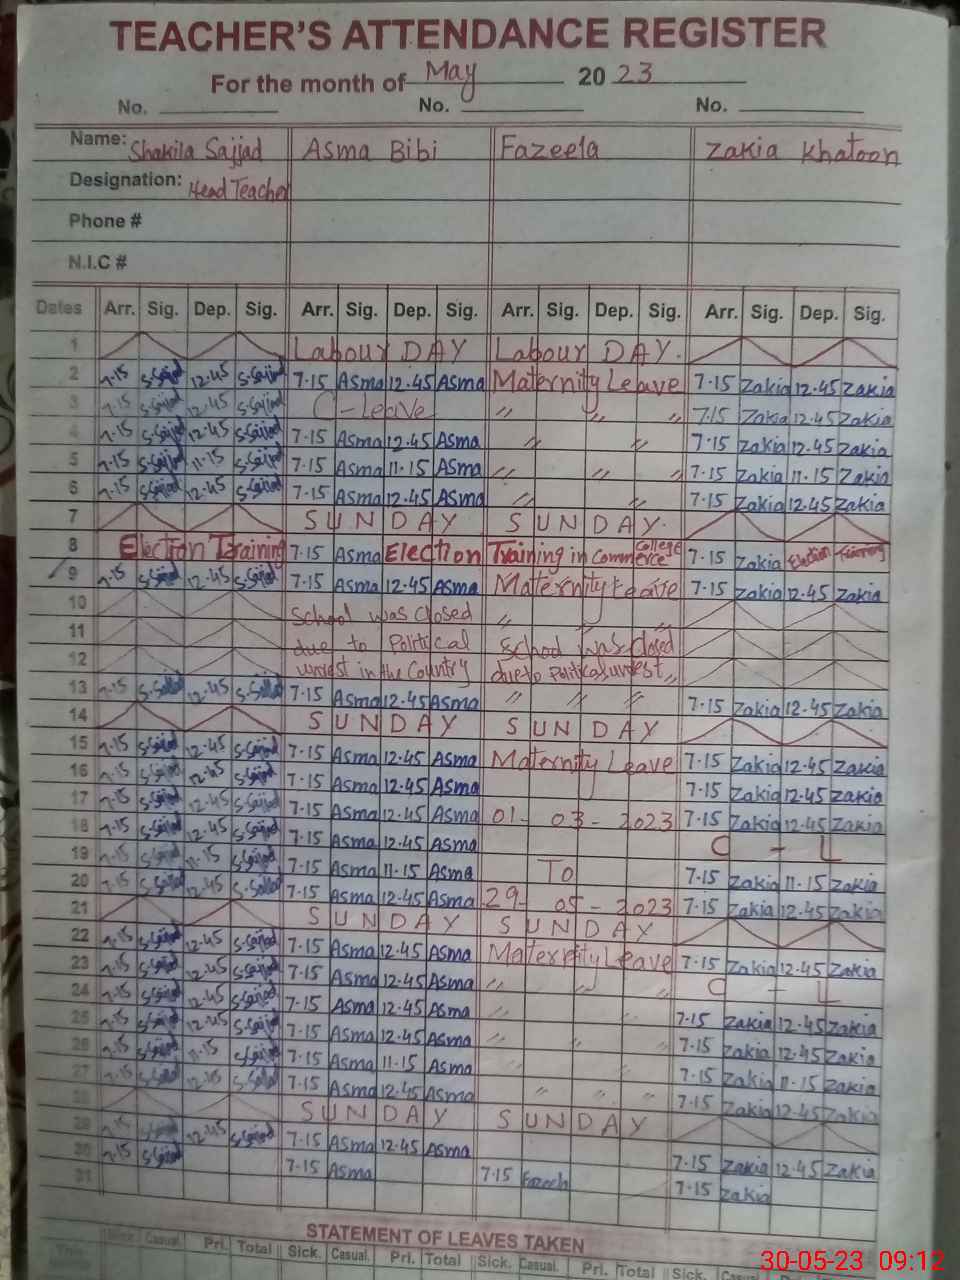 TEACHER'S ATTENDANCE REGISTER
For the month of May 2023
No. No. No.
Name: Shakila Sajjad Asma Bibi Fazeela Zakia Khatoon
Designation: Head Teacher
Phone #
N.I.C #
Dates Arr. Sig. Dep. Sig. Arr. Sig. Dep. Sig. Arr. Sig. Dep. Sig. Arr. Sig. Dep. Sig.
1 Labour DAY Labour DAY.
2 7-15 S-Sajjad 12-45 S-Sajjad 7-15 Asma 12-45 Asma Maternity Leave 7-15 Zakia 12-45 Zakia
3 7-15 S-Sajjad 12-45 S-Sajjad C-Leave " " " 7-15 Zakia 12-45 Zakia
4 7-15 S-Sajjad 12-45 S-Sajjad 7-15 Asma 12-45 Asma " " 7-15 Zakia 12-45 Zakia
5 7-15 S-Sajjad 11-15 S-Sajjad 7-15 Asma 11-15 Asma " " " 7-15 Zakia 11-15 Zakia
6 7-15 S-Sajjad 12-45 S-Sajjad 7-15 Asma 12-45 Asma " " 7-15 Zakia 12-45 Zakia
7 SUNDAY SUNDAY.
8 Election Training 7-15 Asma Election Training in Commerce College 7-15 Zakia Election Training
9 7-15 S-Sajjad 12-45 S-Sajjad 7-15 Asma 12-45 Asma Maternity Leave 7-15 Zakia 12-45 Zakia
10 School was closed " " "
11 due to Political School was closed
12 unrest in the Country due to Political unrest "
13 7-15 S-Sajjad 12-45 S-Sajjad 7-15 Asma 12-45 Asma " " " 7-15 Zakia 12-45 Zakia
14 SUNDAY SUNDAY
15 7-15 S-Sajjad 12-45 S-Sajjad 7-15 Asma 12-45 Asma Maternity Leave 7-15 Zakia 12-45 Zakia
16 7-15 S-Sajjad 12-45 S-Sajjad 7-15 Asma 12-45 Asma 7-15 Zakia 12-45 Zakia
17 7-15 S-Sajjad 12-45 S-Sajjad 7-15 Asma 12-45 Asma 01-03-2023 7-15 Zakia 12-45 Zakia
18 7-15 S-Sajjad 12-45 S-Sajjad 7-15 Asma 12-45 Asma C-L
19 7-15 S-Sajjad 11-15 S-Sajjad 7-15 Asma 11-15 Asma To 7-15 Zakia 11-15 Zakia
20 7-15 S-Sajjad 12-45 S-Sajjad 7-15 Asma 12-45 Asma 29-05-2023 7-15 Zakia 12-45 Zakia
21 SUNDAY SUNDAY
22 7-15 S-Sajjad 12-45 S-Sajjad 7-15 Asma 12-45 Asma Maternity Leave 7-15 Zakia 12-45 Zakia
23 7-15 S-Sajjad 12-45 S-Sajjad 7-15 Asma 12-45 Asma " " " C-L
24 7-15 S-Sajjad 12-45 S-Sajjad 7-15 Asma 12-45 Asma " " 7-15 Zakia 12-45 Zakia
25 7-15 S-Sajjad 12-45 S-Sajjad 7-15 Asma 12-45 Asma " " 7-15 Zakia 12-45 Zakia
26 7-15 S-Sajjad 11-15 S-Sajjad 7-15 Asma 11-15 Asma " " 7-15 Zakia 11-15 Zakia
27 7-15 S-Sajjad 12-45 S-Sajjad 7-15 Asma 12-45 Asma " " " 7-15 Zakia 12-45 Zakia
28 SUNDAY SUNDAY
29 7-15 S-Sajjad 12-45 S-Sajjad 7-15 Asma 12-45 Asma 7-15 Zakia 12-45 Zakia
30 7-15 S-Sajjad 7-15 Asma 7-15 7-15 Zakia
31
STATEMENT OF LEAVES TAKEN
Sick. Casual. Pri. Total Sick. Casual. Pri. Total Sick. Casual. Pri. Total Sick. Casual. Pri. Total
30-05-23 09:12